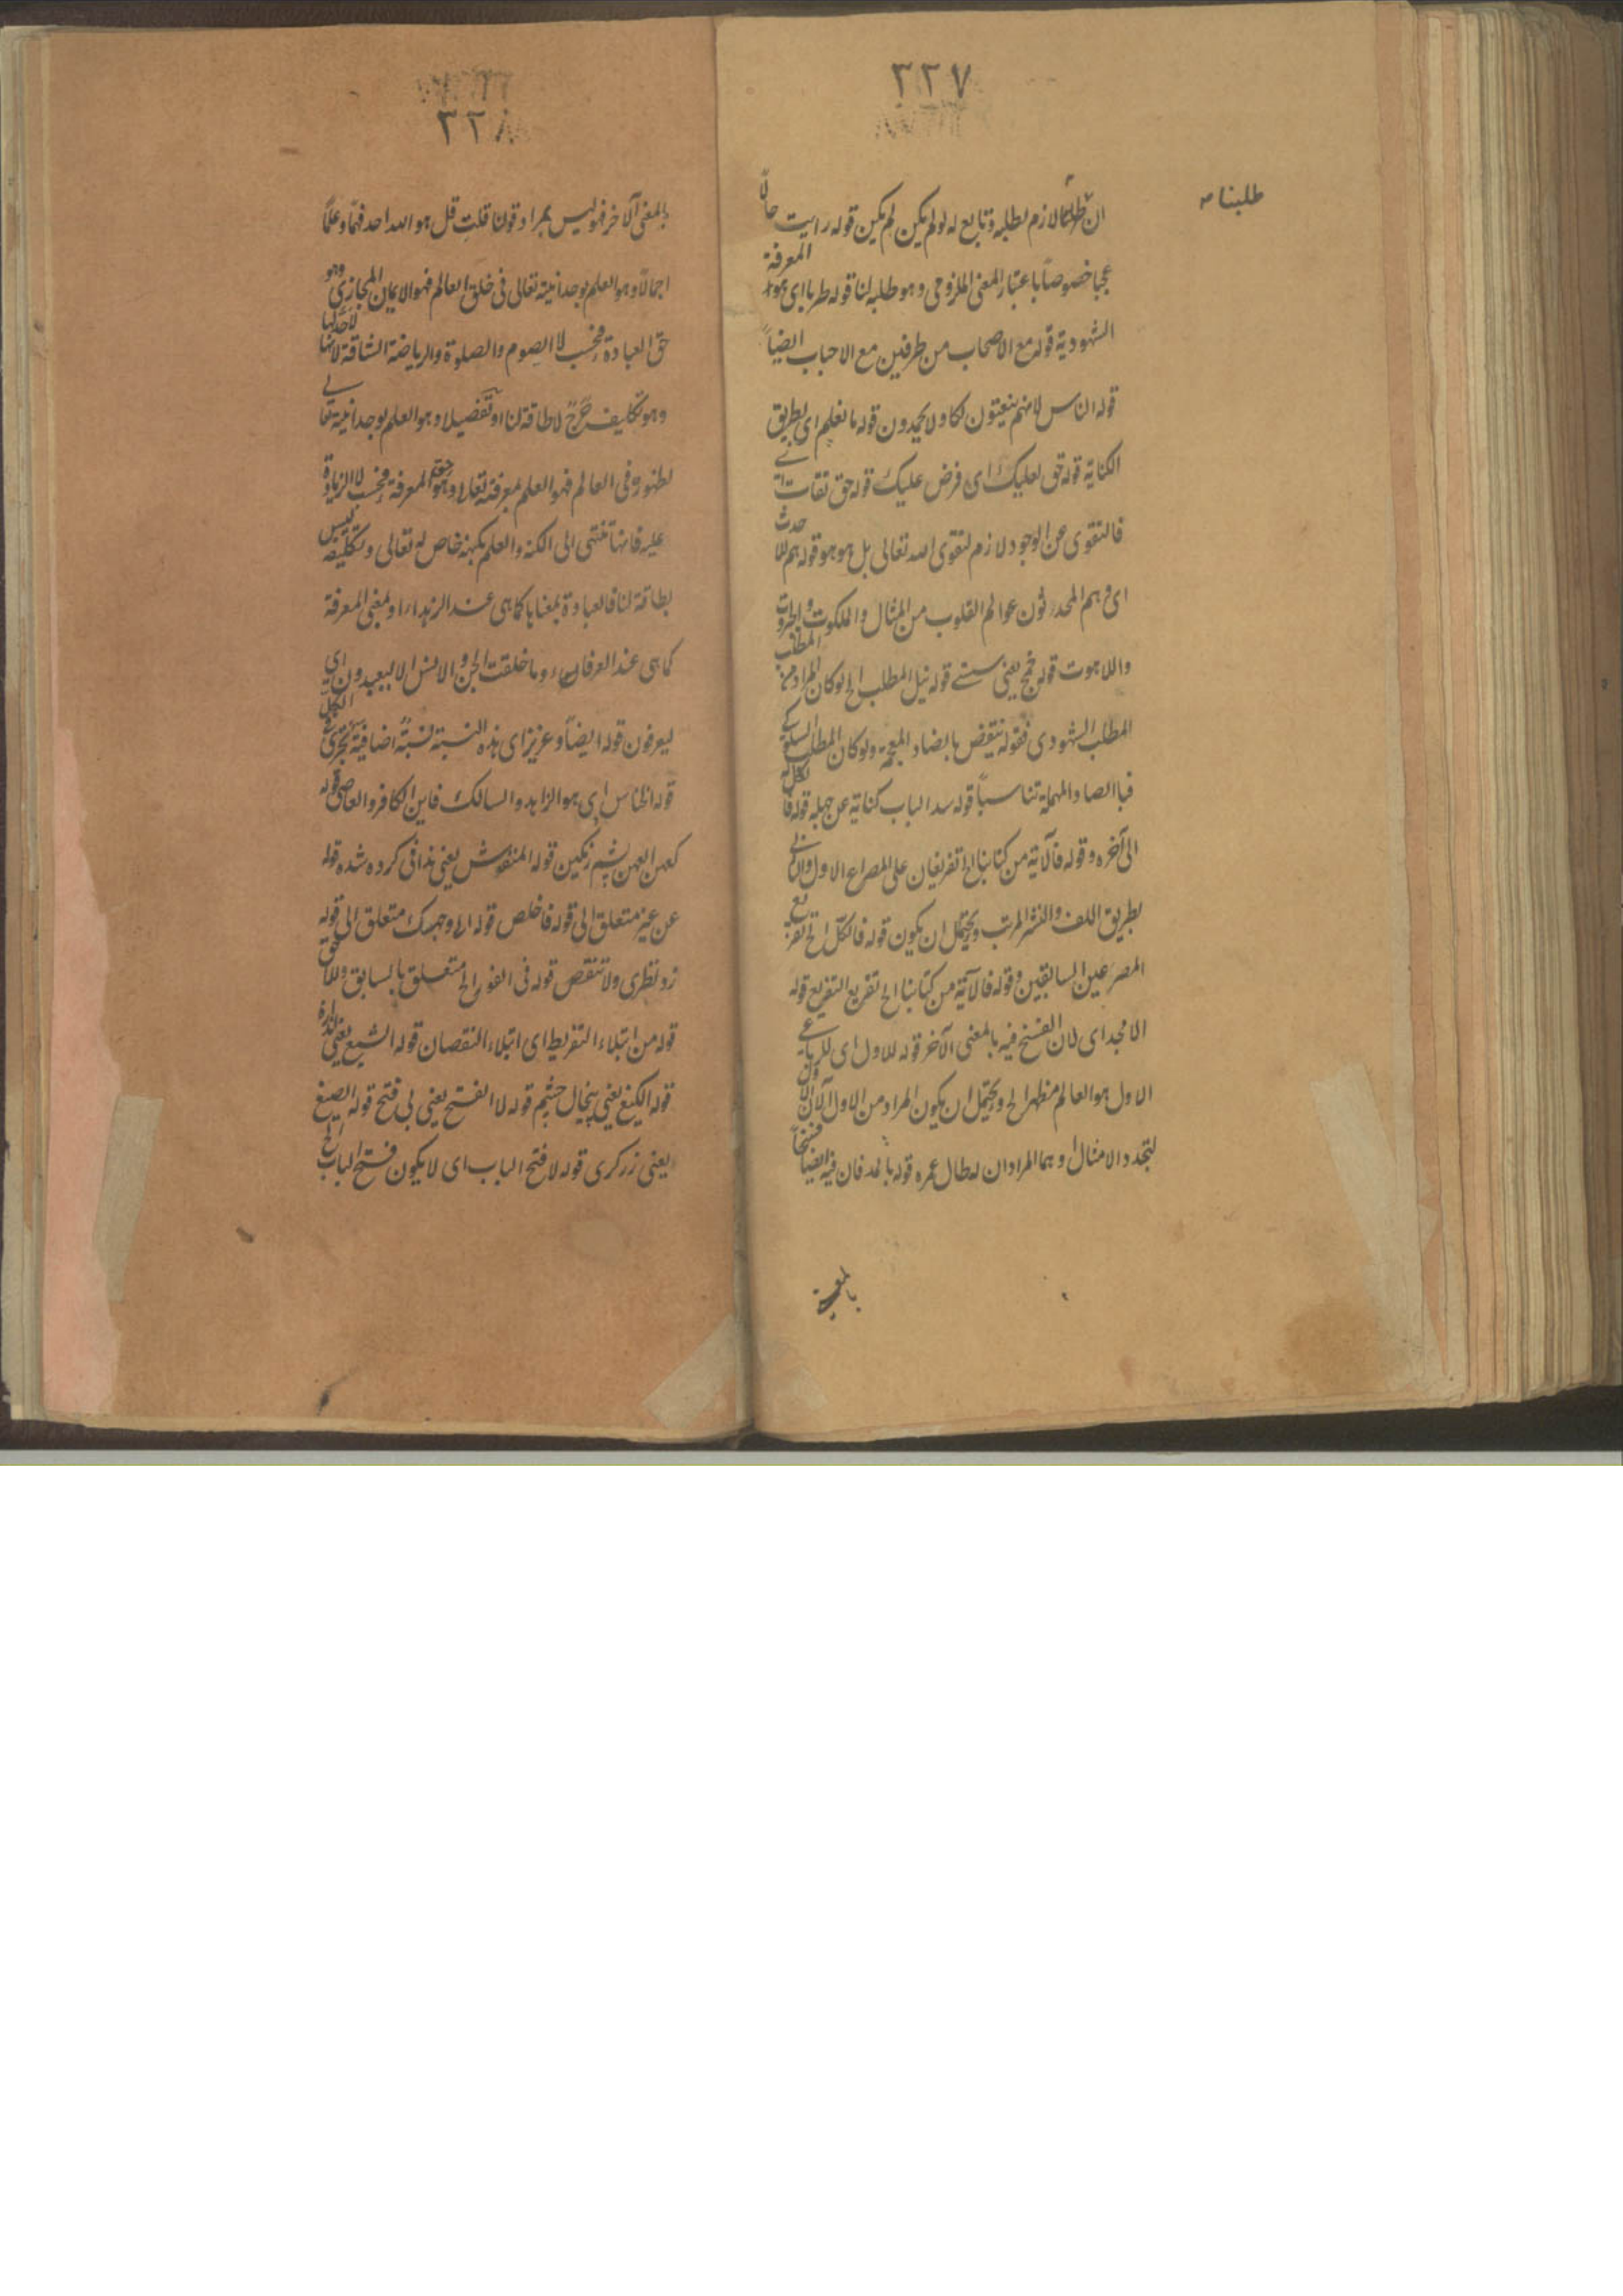 ٣٢٧
طلبنا
ان طلبنا لازم لطلبه وتابع له لو لم يكن لم يكن قوله رايت حالاً
عجبا خصوصاً باعتبار المعنى الملزومى وهو طلبه لنا قوله طربا اى المعرفة
الشهودية قوله مع الاصحاب من طرفين مع الاحباب ايضاً
قوله الناس لانهم ينعتون لكا ولا يحمدون قوله ما نعلم اى بطريق
الكناية قوله حق لعليك اى فرض عليك قوله حق تقات
فالتقوى عن الوجود لازم لتقوى الله تعالى بل هو هو قوله هم
اى وهم المحدثون عوالم القلوب من المثال والملكوت والجبروت
واللاهوت قوله يعنى قوله نيل المطلب الخ لو كان المراد من المطلب
المطلب الشهودى فقوله ينقض بالضاد المعجمة ولو كان المطلب السلوكى
فبالصاد المهملة تناسباً قوله سد الباب كناية عن جهله قوله
الى آخره وقوله فالآية من كتابنا الخ تفريعان على المصراع الاول والثانى
بطريق اللف والنشر المرتب ويحتمل ان يكون قوله فالكل الخ تفريع
المصرعين السابقين وقوله فالآية من كتابنا الخ تفريع التفريع قوله
الامجد اى لان الفسخ فيه بالمعنى الآخر قوله للاول اى للرباعى
الاول هو العالم مظهر الخ ويحتمل ان يكون المراد من الاول الآن الاول
لتجدد الامثال وهما المرادان له طال عمره قوله فان فيه ايضاً فسخاً
بالمعنى
٣٢٨
بالمعنى الآخر فهو ليس بمراد قولنا قلت قل هو الله احد فهما وعلماً
اجمالاً وهو العلم بوحدانيته تعالى فى خلق العالم فهو الايمان المجازى وهو
حق العبادة فحسب لا الصوم والصلوة والرياضة الشاقة لانها لاحد لها
وهو تكليف حرج لا طاقة لنا او تفصيلا وهو العلم بوحدانيته تعالى
لظهوره فى العالم فهو العلم بمعرفته تعالى وهو حق المعرفة فحسب لا الزيادة
عليه فانها تنتهى الى الكنه والعلم بكنهه خاص له تعالى وتكليفه ليس
بطاقة لنا فالعبادة بمعناها كما هى عند الزهداء او بمعنى المعرفة
كما هى عند العرفاء وما خلقت الجن والانس الا ليعبدون اى
ليعرفون قوله ايضاً وعزيز اى هذه النسبة نسبة اضافية تجرى فى الكل
قوله الخناس اى هو الزاهد والسالك فاين الكافر والعاصى قوله
كعهن العهن پشم رنگين قوله المنفوش يعنى ندافى كرده شده قوله
عن غير متعلق الى قوله فاخلص قوله الا وجهك متعلق الى قوله
زد نظرى ولا تنقص قوله فى الفور الخ متعلق بالسابق وللاحق
قوله من ابتلاء التفريط اى ابتلاء النقصان قوله الشيع يعنى اندازه
قوله الكيغ يعنى پيخال چشم قوله لا الفتح يعنى بى فتح قوله الصيغ
يعنى زرگرى قوله لا فتح الباب اى لا يكون فتح الباب الخ